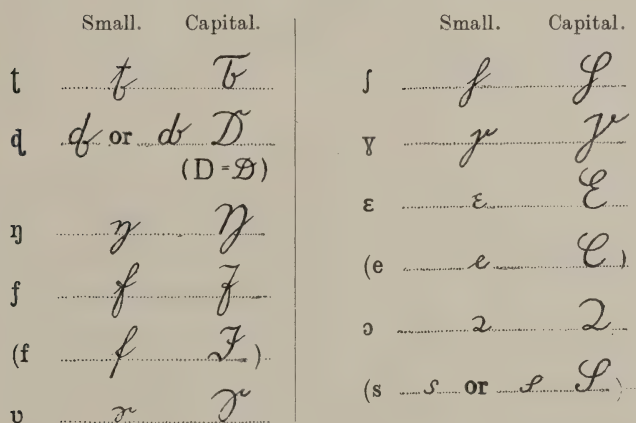 Small. Capital.
ʈ ʈ Ʈ
ɖ ɖ or ɖ Ɖ
(D = D)
ŋ ŋ Ŋ
ƒ ƒ Ƒ
(f f F)
ʋ ʋ Ʋ
Small. Capital.
ʃ ʃ Ʃ
ɣ ɣ Ɣ
ɛ ɛ Ɛ
(e e E)
ɔ ɔ Ɔ
(s s or s S)